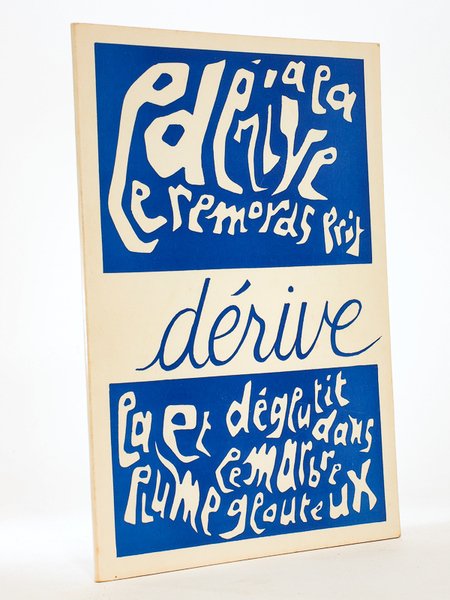 à la
dérive
le remords
dérive
la et déglutit
dans
le marbre
plume glouteux